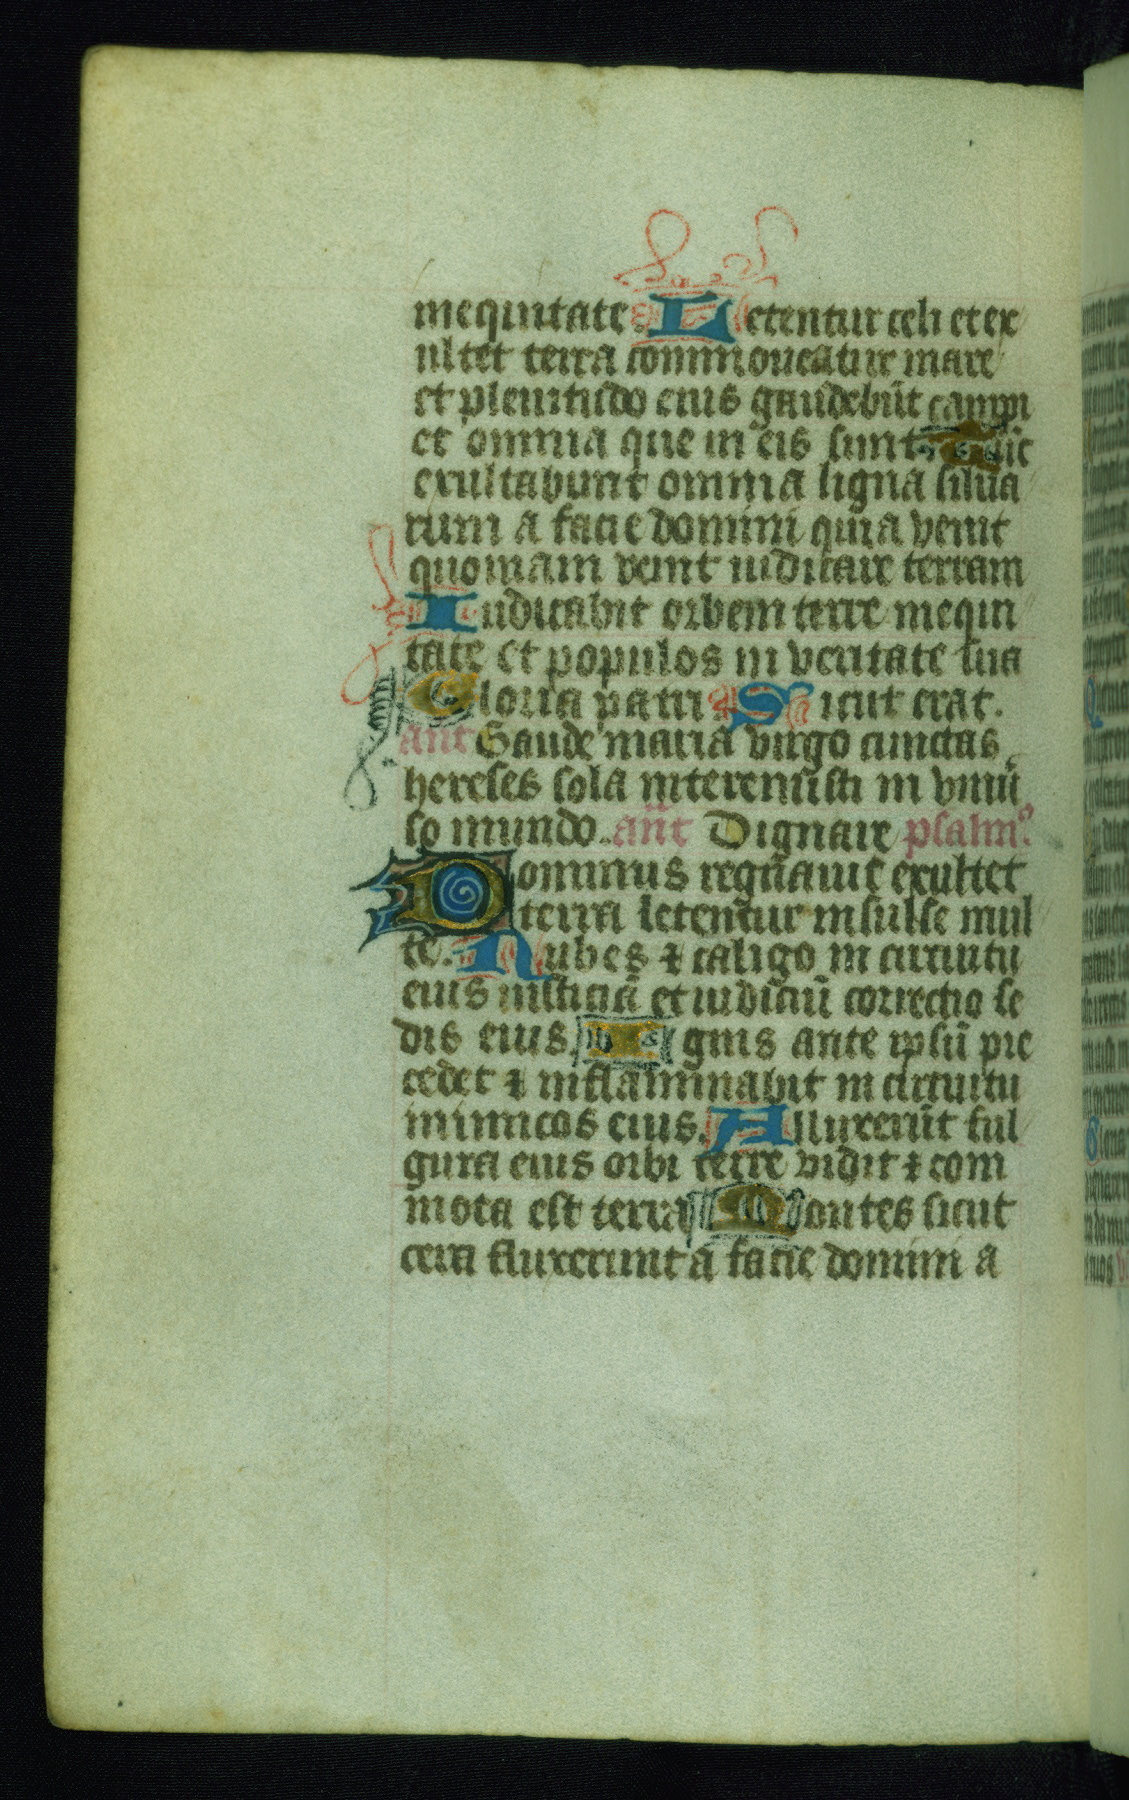 in equitate. Letentur celi et ex
ultet terra commoueatur mare
et plenitudo eius gaudebūt campi
et omnia que in eis sunt. Tūc
exultabunt omnia ligna silua
rum a facie domini quia venit
quoniam venit iudicare terram
Iudicabit orbem terre in equi
tate et populos in veritate sua
Gloria patri Sicut erat.
ant Gaude maria virgo cunctas
hereses sola interemisti in vniū
so mundo. añt Dignare psalmꝰ
Dominus regnauit exultet
terra letentur insulse mul
te. Nubes ⁊ caligo in circuitu
eius iusticia et iudiciū correctio se
dis eius. Ignis ante ipsū pre
cedet ⁊ inflammabit in circuitu
inimicos eius. Alluxerūt ful
gura eius orbi terre vidit ⁊ com
mota est terra Montes sicut
cera fluxerunt a facie domini a